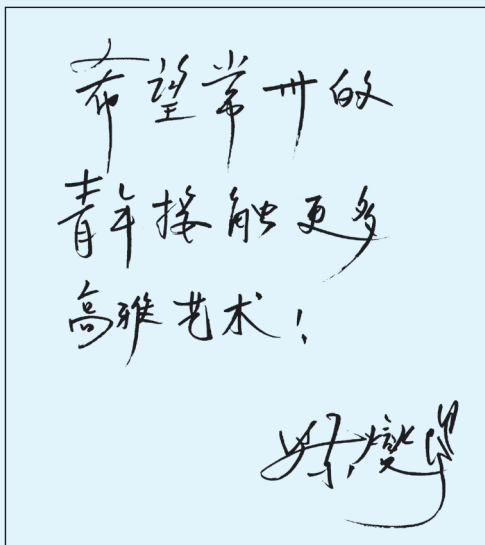 希望常州的
青年接触更多
高雅艺术！